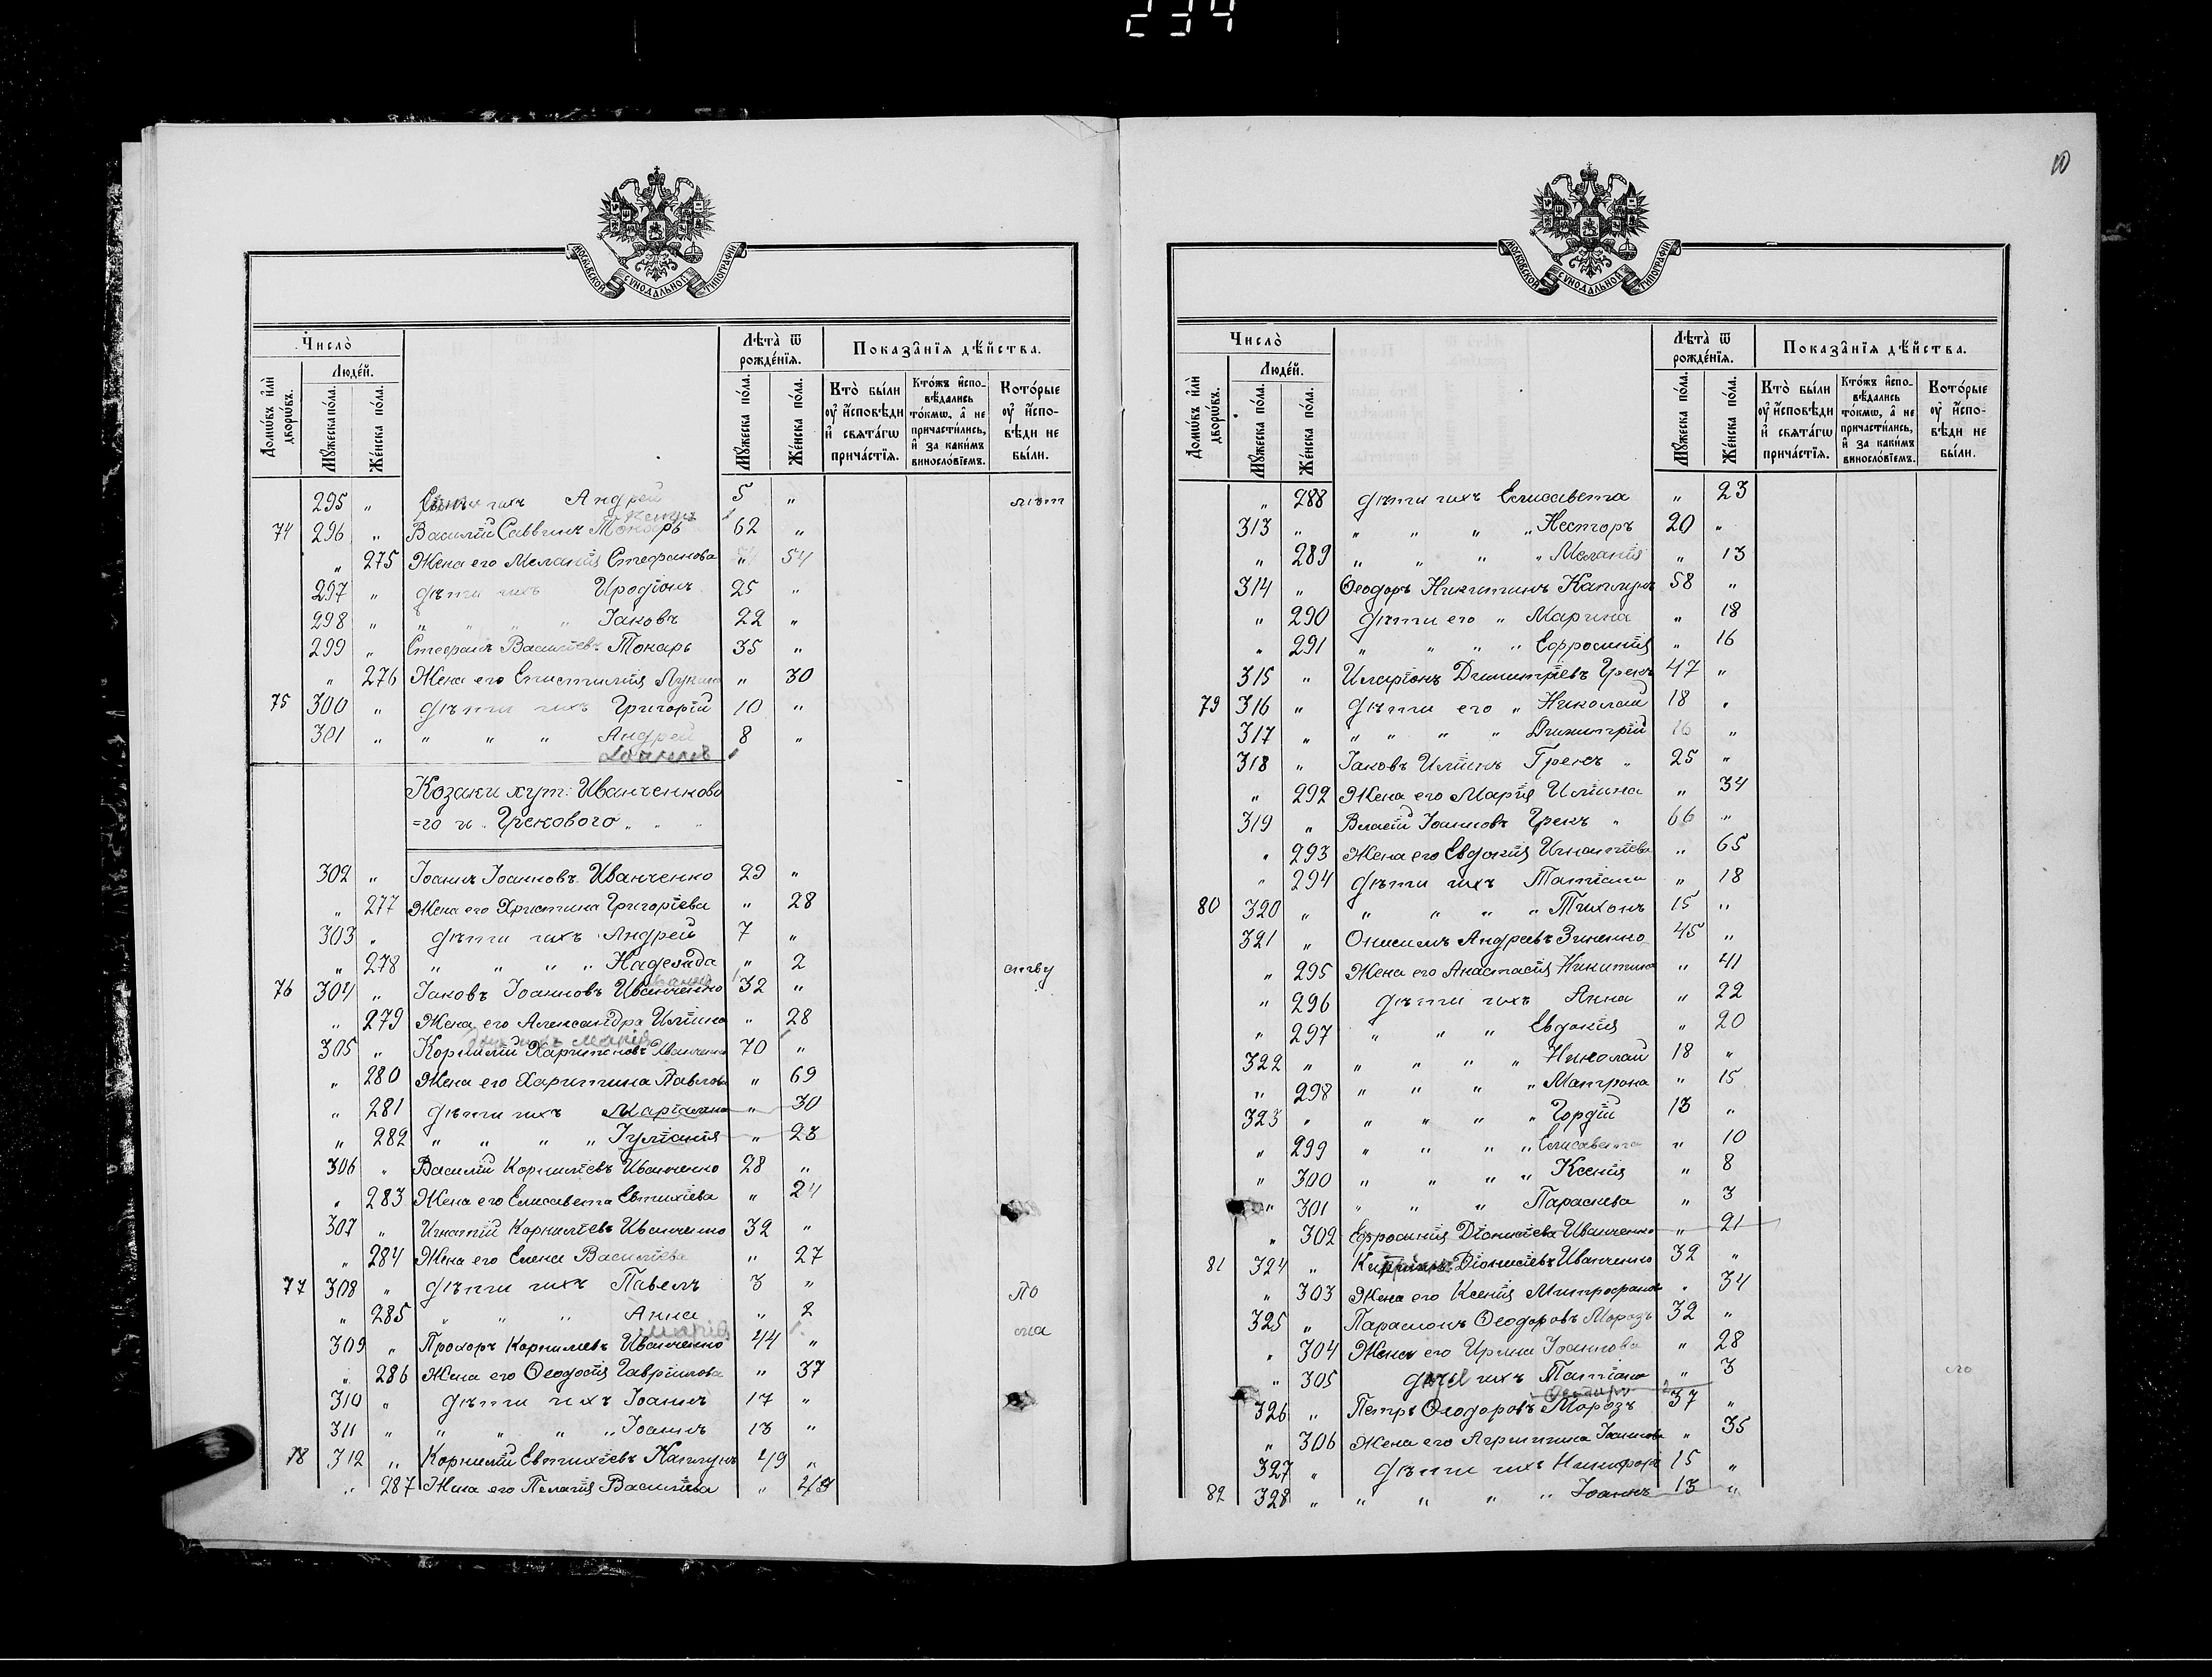 234
10
МОСКОВСКОЙ СѴНОДАЛЬНОЙ ТИПОГРАФІИ
Число̀
Домѡ́въ и҆лѝ дворѡ́въ.
Люде́й.
Мꙋ́жеска по́ла.
Же́нска по́ла.
Лѣ́та ѿ рожде́нїѧ.
Мꙋ́жеска по́ла.
Же́нска по́ла.
Показа̑нїѧ дѣ́йства.
Кто̀ бы́ли ᲂу҆ и҆́сповѣди и҆ свѧта́гѡ прича́стїѧ.
Кто́жъ и҆спо-вѣ́дались то́кмѡ, а҆ не причасти́лись, и҆ за каки́мъ виносло́вїемъ.
Кото́рые ᲂу҆ и҆́спо-вѣди не бы́ли.
295 „ Сынъ ихъ Андрей 5 „
74 296 „ Василій Саввинъ Токарь 62 „
„ 275 Жена его Меланія Стефанова „ 54
297 „ дѣти ихъ Иродіонъ 25 „
298 „ „ „ „ „ Іаковъ 22 „
299 „ Стефанъ Василіевъ Токарь 35 „
„ 276 Жена его Епистилія „ 30
75 300 „ дѣти ихъ Григорій 10 „
301 „ „ „ „ Андрей 8 „
Козаки хут: Иванченково
=го и Грековаго „ „ „
302 „ Іоаннъ Іоанновъ Иванченко 29 „
„ 277 Жена его Христина Григоріева „ 28
303 „ дѣти ихъ Андрей 7 „
„ 278 „ „ „ „ Надежда „ 2
76 304 „ Іаковъ Іоанновъ Иванченко 32 „
„ 279 Жена его Александра Иліина „ 28
305 „ Корнилій Харитоновъ Иванченко 70 „
„ 280 Жена его Харитина Павлова „ 69
„ 281 дѣти ихъ Маріамна „ 30
„ 282 „ „ „ „ Іуліанія „ 23
306 „ Василій Корниліевъ Иванченко 28 „
„ 283 Жена его Елисавета Евтихіева „ 24
307 „ Игнатій Корниліевъ Иванченко 32 „
„ 284 Жена его Елена Василіева „ 27
77 308 „ дѣти ихъ Павелъ 3 „ по
„ 285 „ „ „ Анна „ 2
309 „ Прохоръ Корниліевъ Иванченко 44 „
„ 286 Жена его Ѳеодосія Гавріилова „ 37
310 „ дѣти ихъ Іоаннъ 17 „
311 „ „ „ „ „ Іоаннъ 13 „
78 312 „ Корнилій Евтихіевъ Каплунъ 49 „
„ 287 Жена его Пелагія Василіева „
Число̀
Домѡ́въ и҆лѝ дворѡ́въ.
Люде́й.
Мꙋ́жеска по́ла.
Же́нска по́ла.
Лѣ́та ѿ рожде́нїѧ.
Мꙋ́жеска по́ла.
Же́нска по́ла.
Показа̑нїѧ дѣ́йства.
Кто̀ бы́ли ᲂу҆ и҆́сповѣди и҆ свѧта́гѡ прича́стїѧ.
Кто́жъ и҆спо-вѣ́дались то́кмѡ, а҆ не причасти́лись, и҆ за каки́мъ виносло́вїемъ.
Кото́рые ᲂу҆ и҆́спо-вѣди не бы́ли.
„ 288 дѣти ихъ Елисавета „ 23
313 „ „ „ „ „ Несторъ 20 „
„ 289 „ „ „ „ Меланія „ 13
314 „ Ѳеодоръ Никитинъ Каплунъ 58 „
„ 290 дѣти его „ Марина „ 18
„ 291 „ „ „ „ Ефросинія „ 16
315 „ Иларіонъ Димитріевъ Грекъ 47 „
79 316 „ дѣти его „ Николай 18 „
317 „ „ „ „ „ Димитрій 16 „
318 „ Іаковъ Иліинъ Грекъ „ 25 „
„ 292 Жена его Марія Иліина „ 34
319 „ Власій Іоанновъ Грекъ „ 66 „
„ 293 Жена его Евдокія Игнатіева „ 65
„ 294 дѣти ихъ Татіана „ 18
80 320 „ „ „ „ „ Тихонъ 15 „
321 „ Онисимъ Андреевъ Зиненко 45 „
„ 295 Жена его Анастасія Никитина „ 41
„ 296 дѣти ихъ Анна „ 22
„ 297 „ „ „ Евдокія „ 20
322 „ „ „ „ „ Николай 18 „
„ 298 „ „ „ „ Матрона „ 15
323 „ „ „ „ „ Гордій 13 „
„ 299 „ „ „ „ Елисавета „ 10
„ 300 „ „ „ „ Ксенія „ 8
„ 301 „ „ „ Параскева „ 3
„ 302 Ефросинія Діонисіева Иванченко „ 21
81 324 „ Діонисіевъ Иванченко 32 „
„ 303 Жена его Ксенія Митрофанова „ 34
325 „ Парамонъ Ѳеодоровъ Морозъ 32 „
„ 304 Жена его Ирина Іоаннова „ 28
„ 305 ихъ Татіана „ 3
326 „ Петръ Ѳеодоровъ Морозъ 37 „
„ 306 Жена его Агриппина Іоаннова „ 35
327 „ дѣти ихъ Никифоръ 15 „
82 328 „ „ „ „ „ Іоаннъ 13 „